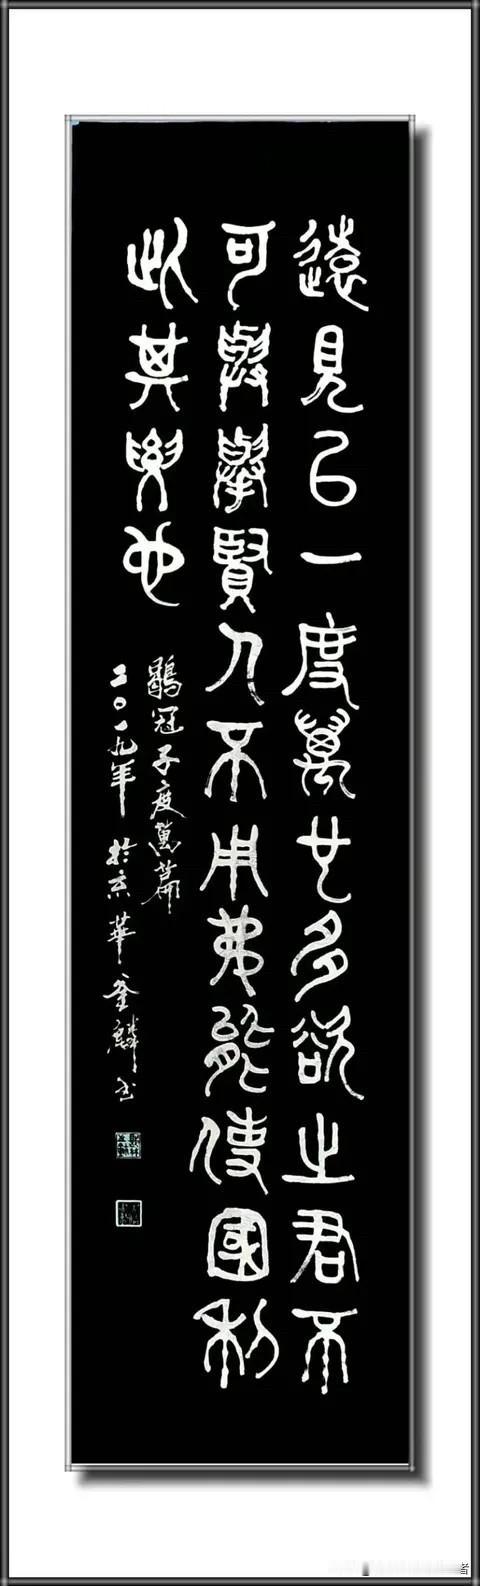 遠見㠯一度萬也多欲之君不
可與舉賢人不用弗能使國利
此其要也
鶡冠子度萬篇
二〇一九年於京華麟书
者